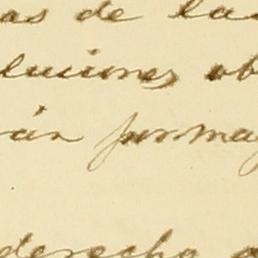 as de la
luciones ob
rán forma
derecho a